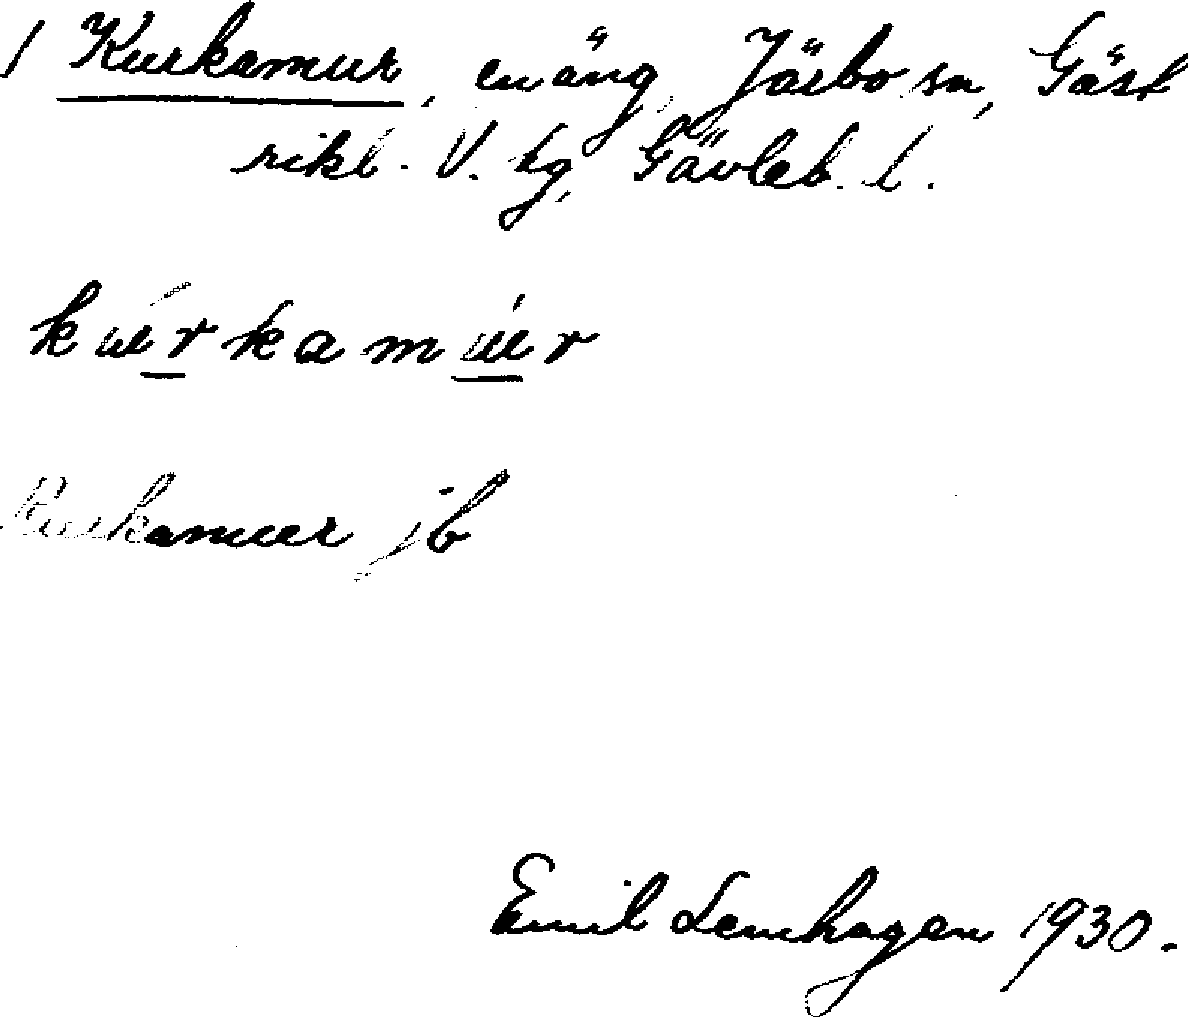 1 Kurkamur, en äng, Järbo sn, Gäst
rikl. V. tg, Gävleb. l.
kúrkamúr
Kurkamur jb
Emil Lenhagen 1930.